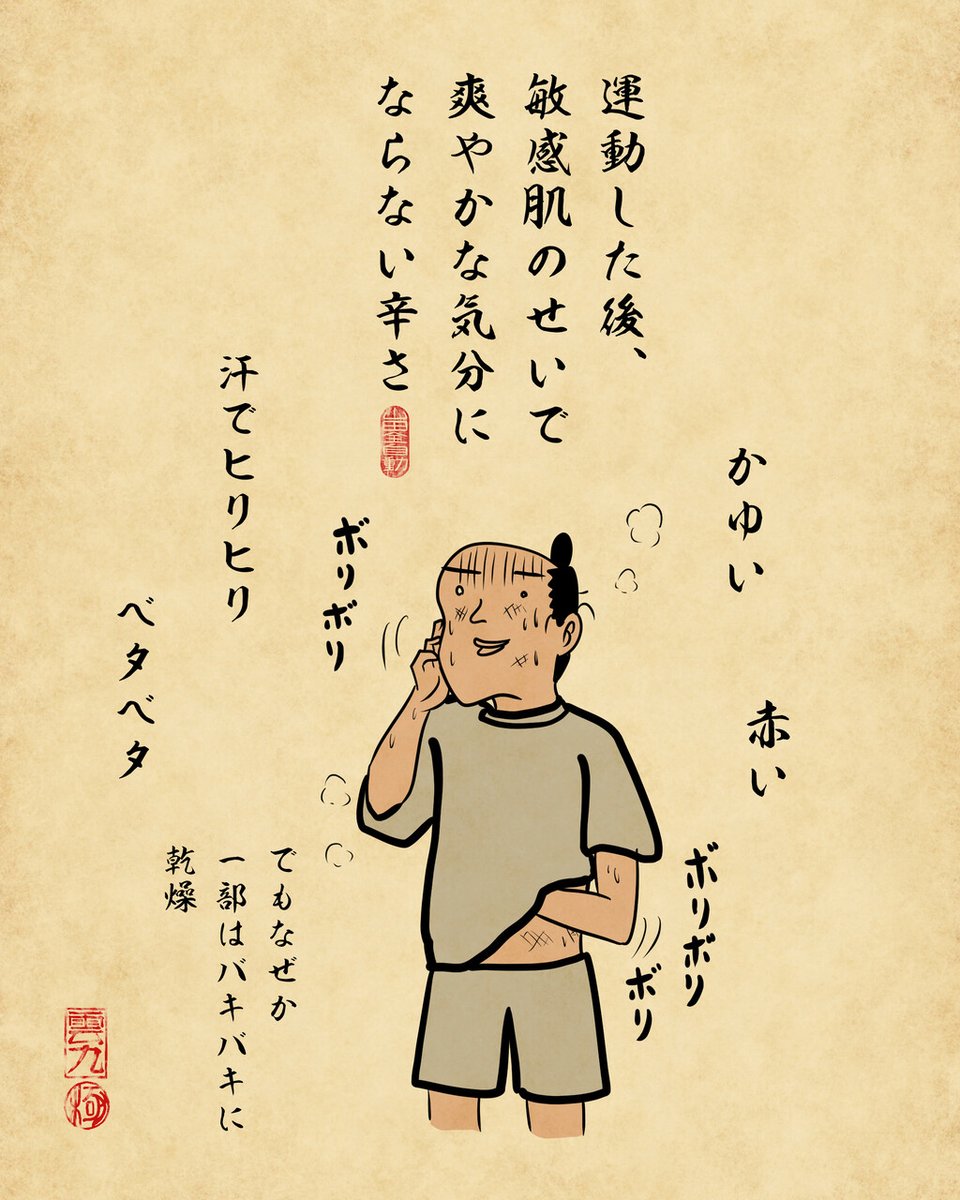 運動した後、
敏感肌のせいで
爽やかな気分に
ならない辛さ
かゆい
赤い
ボリボリ
ボリボリ
ボリ
汗でヒリヒリ
ベタベタ
でもなぜか
一部はバキバキに
乾燥